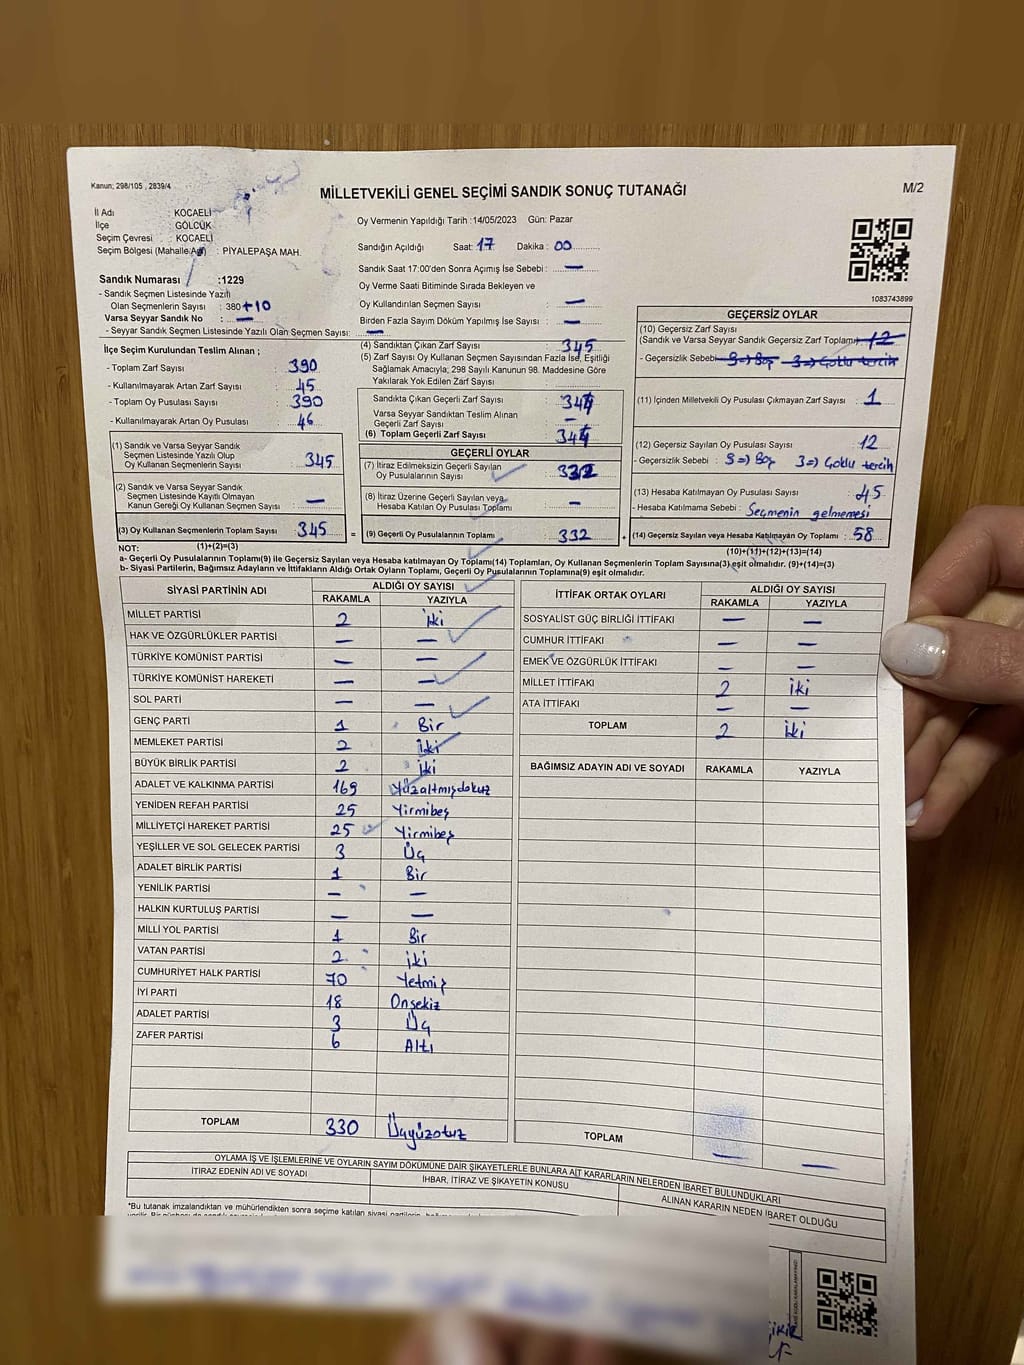 Kanun; 298/105 , 2839/4
MİLLETVEKİLİ GENEL SEÇİMİ SANDIK SONUÇ TUTANAĞI
M/2
İl Adı : KOCAELİ
İlçe : GÖLCÜK
Seçim Çevresi : KOCAELİ
Seçim Bölgesi (Mahalle/ : PİYALEPAŞA MAH.
Sandık Numarası :1229
- Sandık Seçmen Listesinde Yazılı
Olan Seçmenlerin Sayısı : 380+10
Varsa Seyyar Sandık No : —
- Seyyar Sandık Seçmen Listesinde Yazılı Olan Seçmen Sayısı: —
Oy Vermenin Yapıldığı Tarih :14/05/2023 Gün: Pazar
Sandığın Açıldığı Saat: 17 Dakika : 00
Sandık Saat 17:00'den Sonra Açımış İse Sebebi : —
Oy Verme Saati Bitiminde Sırada Bekleyen ve
Oy Kullandırılan Seçmen Sayısı : —
Birden Fazla Sayım Döküm Yapılmış İse Sayısı : —
1083743899
İlçe Seçim Kurulundan Teslim Alınan ;
- Toplam Zarf Sayısı : 390
- Kullanılmayarak Artan Zarf Sayısı : 45
- Toplam Oy Pusulası Sayısı : 390
- Kullanılmayarak Artan Oy Pusulası : 46
(1) Sandık ve Varsa Seyyar Sandık
Seçmen Listesinde Yazılı Olup
Oy Kullanan Seçmenlerin Sayısı : 345
(2) Sandık ve Varsa Seyyar Sandık
Seçmen Listesinde Kayıtlı Olmayan
Kanun Gereği Oy Kullanan Seçmen Sayısı : —
(3) Oy Kullanan Seçmenlerin Toplam Sayısı : 345
(4) Sandıktan Çıkan Zarf Sayısı : 345
(5) Zarf Sayısı Oy Kullanan Seçmen Sayısından Fazla İse, Eşitliği
Sağlamak Amacıyla; 298 Sayılı Kanunun 98. Maddesine Göre
Yakılarak Yok Edilen Zarf Sayısı :
Sandıkta Çıkan Geçerli Zarf Sayısı : 344
Varsa Seyyar Sandıktan Teslim Alınan
Geçerli Zarf Sayısı : —
(6) Toplam Geçerli Zarf Sayısı : 344
GEÇERLİ OYLAR
(7) İtiraz Edilmeksizin Geçerli Sayılan
Oy Pusulalarının Sayısı : 332
(8) İtiraz Üzerine Geçerli Sayılan veya
Hesaba Katılan Oy Pusulası Toplamı : —
= (9) Geçerli Oy Pusulalarının Toplamı : 332 +
GEÇERSİZ OYLAR
(10) Geçersiz Zarf Sayısı
(Sandık ve Varsa Seyyar Sandık Geçersiz Zarf Toplamı) 12
- Geçersizlik Sebebi 9=) Boş 3=) Çoklu tercih
(11) İçinden Milletvekili Oy Pusulası Çıkmayan Zarf Sayısı : 1
(12) Geçersiz Sayılan Oy Pusulası Sayısı : 12
- Geçersizlik Sebebi : 9=) Boş 3=) Çoklu tercih
(13) Hesaba Katılmayan Oy Pusulası Sayısı : 45
- Hesaba Katılmama Sebebi : Seçmenin gelmemesi
(14) Geçersiz Sayılan veya Hesaba Katılmayan Oy Toplamı : 58
NOT: (1)+(2)=(3) (10)+(11)+(12)+(13)=(14)
a- Geçerli Oy Pusulalarının Toplamı(9) ile Geçersiz Sayılan veya Hesaba Katılmayan Oy Toplamı(14) Toplamları, Oy Kullanan Seçmenlerin Toplam Sayısına(3) eşit olmalıdır. (9)+(14)=(3)
b- Siyasi Partilerin, Bağımsız Adayların ve İttifakların Aldığı Ortak Oyların Toplamı, Geçerli Oy Pusulalarının Toplamına(9) eşit olmalıdır.
SİYASİ PARTİNİN ADI ALDIĞI OY SAYISI
RAKAMLA YAZIYLA
MİLLET PARTİSİ 2 İki
HAK VE ÖZGÜRLÜKLER PARTİSİ — —
TÜRKİYE KOMÜNİST PARTİSİ — —
TÜRKİYE KOMÜNİST HAREKETİ — —
SOL PARTİ — —
GENÇ PARTİ 1 Bir
MEMLEKET PARTİSİ 2 İki
BÜYÜK BİRLİK PARTİSİ 2 İki
ADALET VE KALKINMA PARTİSİ 169 Yüzaltmışdokuz
YENİDEN REFAH PARTİSİ 25 Yirmibeş
MİLLİYETÇİ HAREKET PARTİSİ 25 Yirmibeş
YEŞİLLER VE SOL GELECEK PARTİSİ 3 Üç
ADALET BİRLİK PARTİSİ 1 Bir
YENİLİK PARTİSİ — —
HALKIN KURTULUŞ PARTİSİ — —
MİLLİ YOL PARTİSİ 1 Bir
VATAN PARTİSİ 2 iki
CUMHURİYET HALK PARTİSİ 70 Yetmiş
İYİ PARTİ 18 Onsekiz
ADALET PARTİSİ 3 Üç
ZAFER PARTİSİ 6 Altı
TOPLAM 330 Üçyüzotuz
İTTİFAK ORTAK OYLARI ALDIĞI OY SAYISI
RAKAMLA YAZIYLA
SOSYALİST GÜÇ BİRLİĞİ İTTİFAKI — —
CUMHUR İTTİFAKI — —
EMEK VE ÖZGÜRLÜK İTTİFAKI — —
MİLLET İTTİFAKI 2 iki
ATA İTTİFAKI — —
TOPLAM 2 İki
BAĞIMSIZ ADAYIN ADI VE SOYADI RAKAMLA YAZIYLA
TOPLAM — —
OYLAMA İŞ VE İŞLEMLERİNE VE OYLARIN SAYIM DÖKÜMÜNE DAİR ŞİKAYETLERLE BUNLARA AİT KARARLARIN NELERDEN İBARET BULUNDUKLARI
İTİRAZ EDENİN ADI VE SOYADI İHBAR, İTİRAZ VE ŞİKAYETİN KONUSU ALINAN KARARIN NEDEN İBARET OLDUĞU
*Bu tutanak imzalandıktan ve mühürlendikten sonra seçime katılan siyasi partilerin,